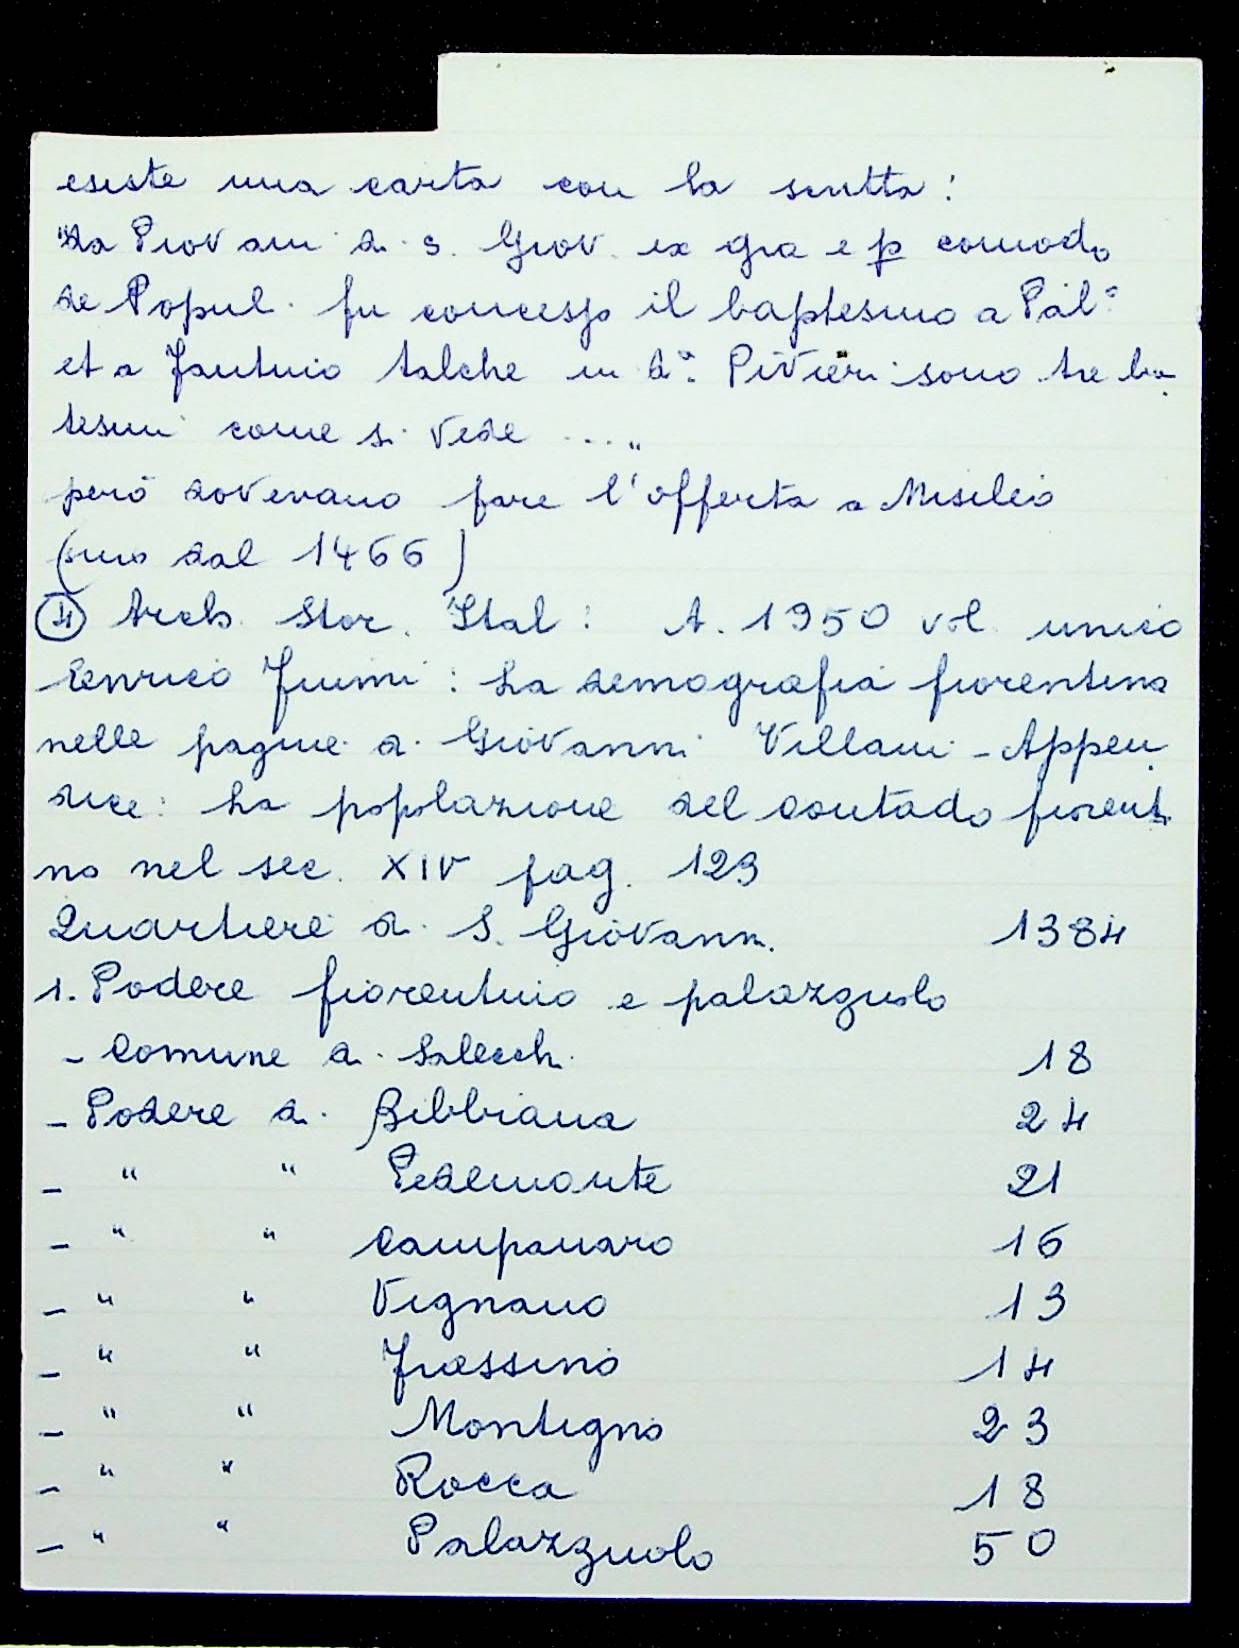 esiste una carta con la scritta:
"Da Piovani di S. Giov. ex gra e p comodo
de Popul. fu concesso il baptesimo a Pal°
et a Fantino talche in d° Pivieri sono tre ba
tesimi come si vede ...."
però dovevano fare l'offerta a Misileo
(sino dal 1466)
④ Arch. Stor. Ital: A. 1950 vol. unico
Enrico Fiumi: La demografia fiorentina
nelle pagine di Giovanni Villani - Appen
dice: La popolazione del contado fiorenti
no nel sec. XIV pag. 129
Quartiere di S. Giovanni 1384
1. Podere fiorentino e palazzuolo
- Comune di Salecchi 18
- Podere di Bibbiana 24
- " " Pedimonte 21
- " " Campanaro 16
- " " Vignano 13
- " " Frassino 14
- " " Montigno 23
- " " Rocca 18
- " " Palazzuolo 50